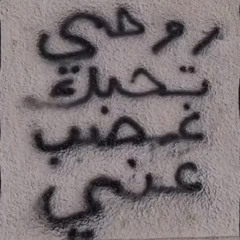 روحي
تحبك
غصب
عني